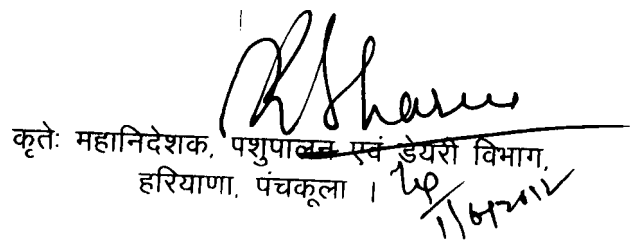 RSharma
कृतेः महानिदेशक, पशुपालन एवं डेयरी विभाग,
हरियाणा, पंचकूला ।